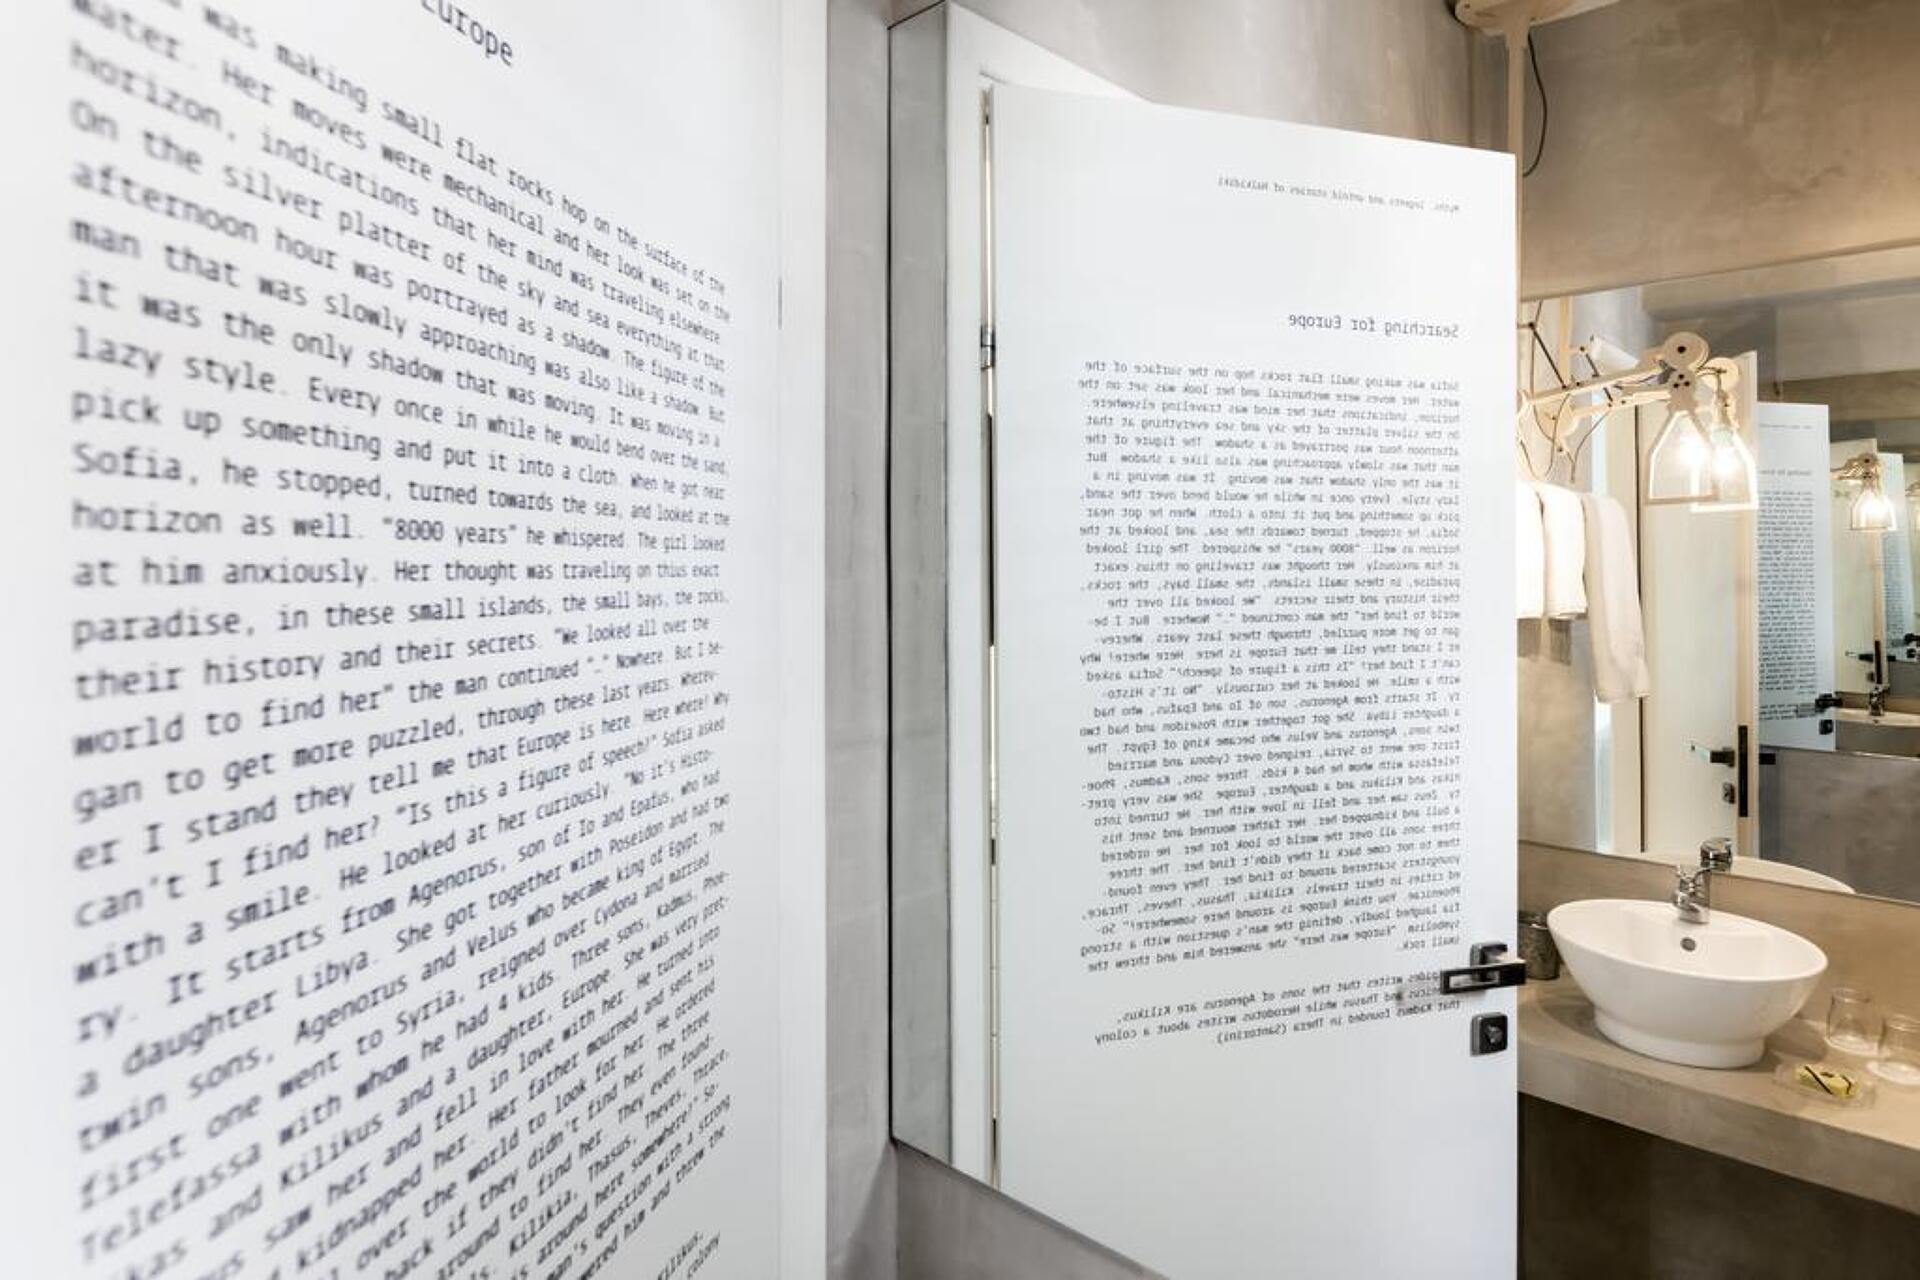 Europe
was making small flat rocks hop on the surface of the
water. Her moves were mechanical and her look was set on the
horizon, indications that her mind was traveling elsewhere.
On the silver platter of the sky and sea everything at that
afternoon hour was portrayed as a shadow. The figure of the
man that was slowly approaching was also like a shadow. But
it was the only shadow that was moving. It was moving in a
lazy style. Every once in while he would bend over the sand,
pick up something and put it into a cloth. When he got near
Sofia, he stopped, turned towards the sea, and looked at the
horizon as well. "8000 years" he whispered. The girl looked
at him anxiously. Her thought was traveling on thius exact
paradise, in these small islands, the small bays, the rocks,
their history and their secrets. "We looked all over the
world to find her" the man continued "." Nowhere. But I be-
gan to get more puzzled, through these last years. Wherev-
er I stand they tell me that Europe is here. Here where! Why
can't I find her? "Is this a figure of speech?" Sofia asked
with a smile. He looked at her curiously. "No it's Histo-
ry. It starts from Agenorus, son of Io and Epafus, who had
a daughter Libya. She got together with Poseidon and had two
twin sons, Agenorus and Velus who became king of Egypt. The
first one went to Syria, reigned over Cydona and married
Telefassa with whom he had 4 kids. Three sons, Kadmus, Phoe-
kas and Kilikus and a daughter, Europe. She was very pret-
us saw her and fell in love with her. He turned into
kidnapped her. Her father mourned and sent his
l over the world to look for her. He ordered
back if they didn't find her. The three
around to find her. They even found-
s. Kilikia, Thasus, Theves, Thrace,
is around here somewhere?" So-
man's question with a strong
wered him and threw the
Kilikus,
colony
Myths, legents and untold stories of Halkidiki
Searching for Europe
Sofia was making small flat rocks hop on the surface of the
water. Her moves were mechanical and her look was set on the
horizon, indications that her mind was traveling elsewhere.
On the silver platter of the sky and sea everything at that
afternoon hour was portrayed as a shadow. The figure of the
man that was slowly approaching was also like a shadow. But
it was the only shadow that was moving. It was moving in a
lazy style. Every once in while he would bend over the sand,
pick up something and put it into a cloth. When he got near
Sofia, he stopped, turned towards the sea, and looked at the
horizon as well. "8000 years" he whispered. The girl looked
at him anxiously. Her thought was traveling on thius exact
paradise, in these small islands, the small bays, the rocks,
their history and their secrets. "We looked all over the
world to find her" the man continued "." Nowhere. But I be-
gan to get more puzzled, through these last years. Wherev-
er I stand they tell me that Europe is here. Here where! Why
can't I find her? "Is this a figure of speech?" Sofia asked
with a smile. He looked at her curiously. "No it's Histo-
ry. It starts from Agenorus, son of Io and Epafus, who had
a daughter Libya. She got together with Poseidon and had two
twin sons, Agenorus and Velus who became king of Egypt. The
first one went to Syria, reigned over Cydona and married
Telefassa with whom he had 4 kids. Three sons, Kadmus, Phoe-
nikas and Kilikus and a daughter, Europe. She was very pret-
ty. Zeus saw her and fell in love with her. He turned into
a bull and kidnapped her. Her father mourned and sent his
three sons all over the world to look for her. He ordered
them to not come back if they didn't find her. The three
youngsters scattered around to find her. They even found-
ed cities in their travels. Kilikia, Thasus, Theves, Thrace,
Phoenicae. You think Europe is around here somewhere?" So-
fia laughed loudly, defining the man's question with a strong
symbolism. "Europe was here" she answered him and threw the
small rock.
writes that the sons of Agenorus are Kilikus,
and Thasus while Herodotus writes about a colony
that Kadmus founded in Thera (Santorini)